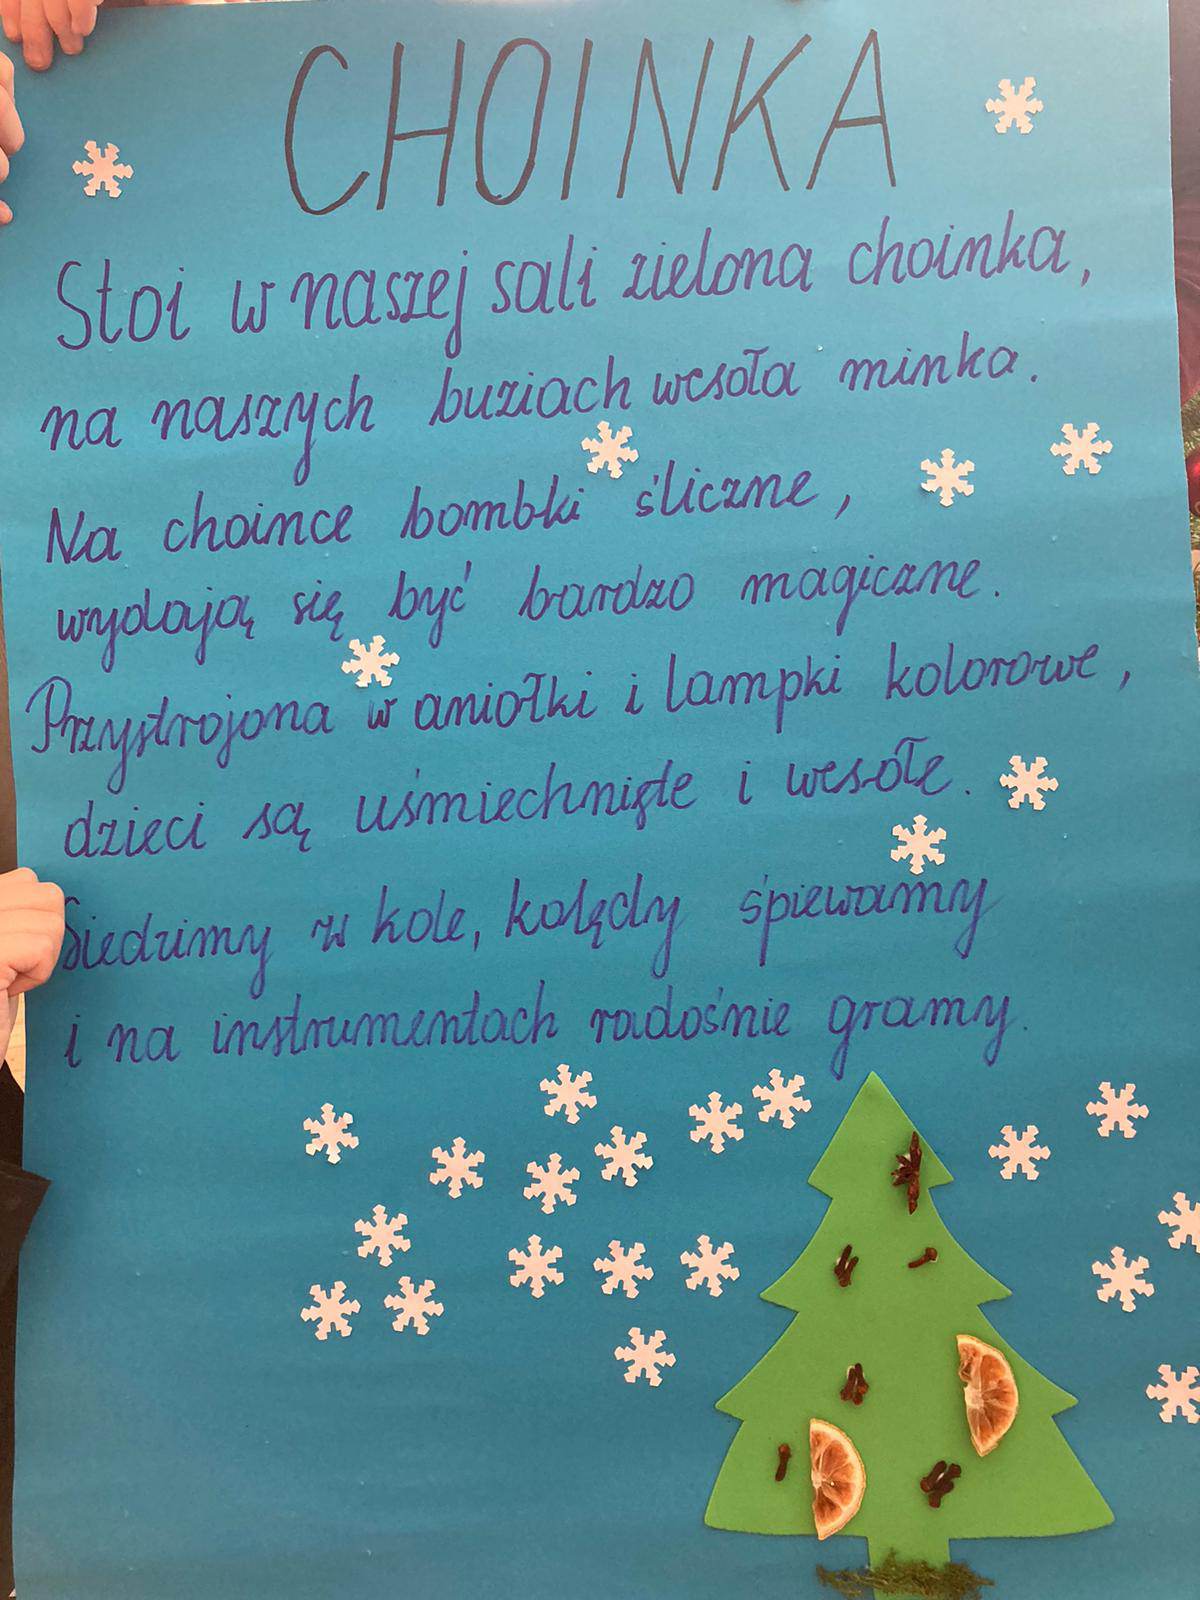 CHOINKA
Stoi w naszej sali zielona choinka,
na naszych buziach wesoła minka.
Na choince bombki śliczne,
wydają się być bardzo magiczne.
Przystrojona w aniołki i lampki kolorowe,
dzieci są uśmiechnięte i wesołe.
Siedzimy w kole, kolędy śpiewamy
i na instrumentach radośnie gramy.